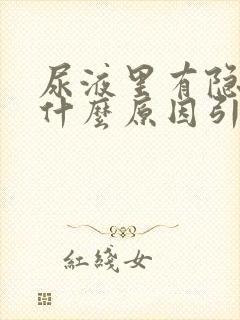 尿液里有隐
什麼原因引
红綫女